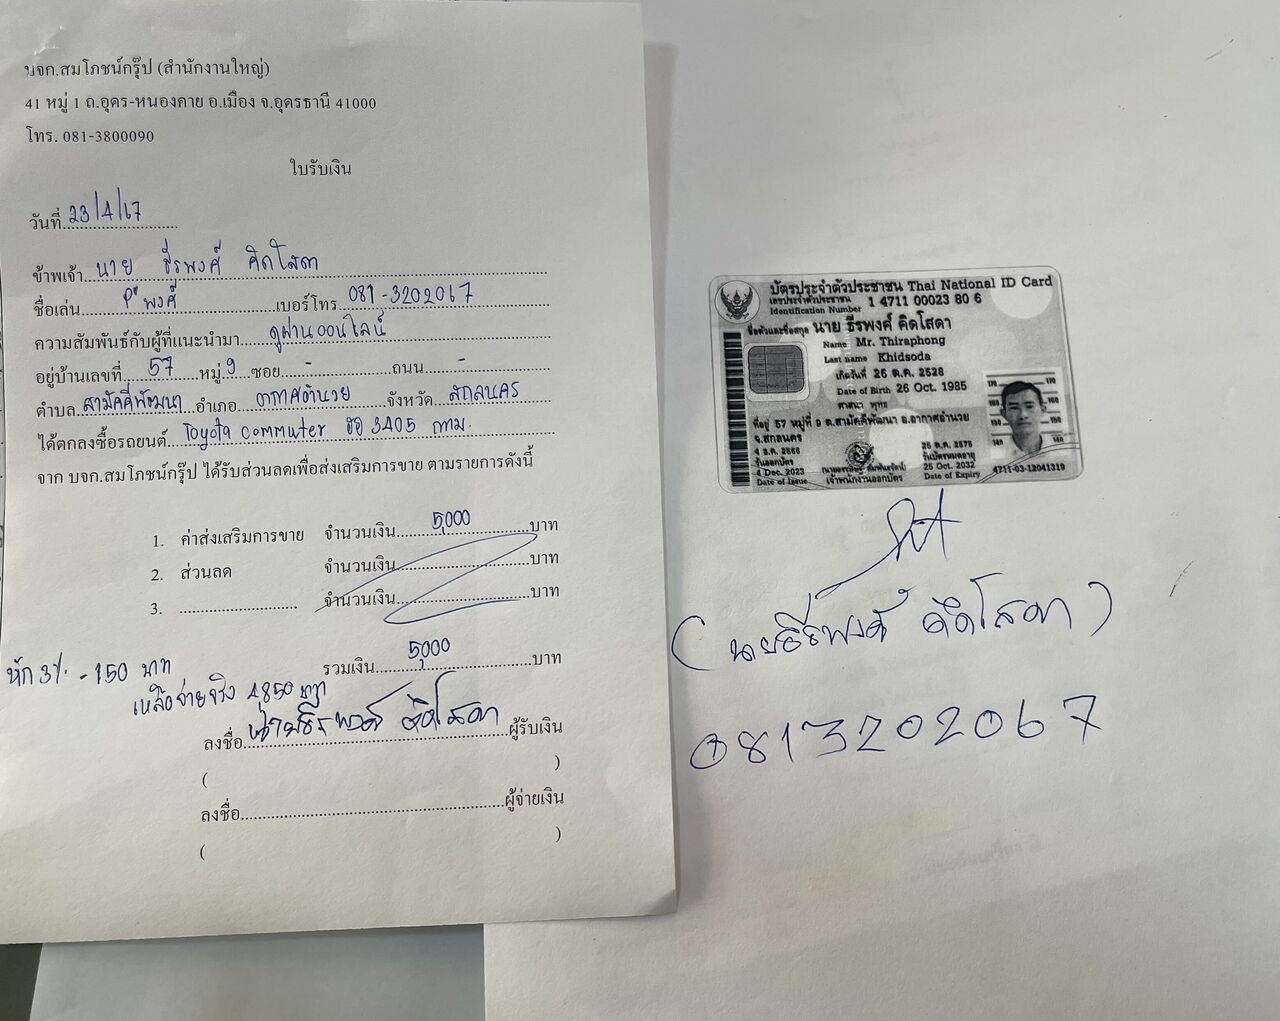 บจก.สมโภชน์กรุ๊ป (สำนักงานใหญ่)
41 หมู่ 1 ถ.อุดร-หนองคาย อ.เมือง จ.อุดรธานี 41000
โทร. 081-3800090
ใบรับเงิน
วันที่ 23/4/67
ข้าพเจ้า นาย ธีรพงศ์ คิดโสดา
ชื่อเล่น P' พงศ์ เบอร์โทร 081-3202067
ความสัมพันธ์กับผู้ที่แนะนำมา ดูผ่านออนไลน์
อยู่บ้านเลขที่ 57 หมู่ 9 ซอย - ถนน -
ตำบล สามัคคีพัฒนา อำเภอ อากาศอำนวย จังหวัด สกลนคร
ได้ตกลงซื้อรถยนต์ Toyota commuter ฮอ 3405 กทม.
จาก บจก.สมโภชน์กรุ๊ป ได้รับส่วนลดเพื่อส่งเสริมการขาย ตามรายการดังนี้
1. ค่าส่งเสริมการขาย จำนวนเงิน 5,000 บาท
2. ส่วนลด จำนวนเงิน บาท
3. จำนวนเงิน บาท
รวมเงิน 5,000 บาท
หัก 3% - 150 บาท
เหลือจ่ายจริง 4850 บาท
ลงชื่อ นายธีรพงศ์ คิดโสดา ผู้รับเงิน
( )
ลงชื่อ ผู้จ่ายเงิน
( )
บัตรประจำตัวประชาชน Thai National ID Card
เลขประจำตัวประชาชน 1 4711 00023 80 6
Identification Number
ชื่อตัวและชื่อสกุล นาย ธีรพงศ์ คิดโสดา
Name Mr. Thiraphong
Last name Khidsoda
เกิดวันที่ 26 ต.ค. 2528
Date of Birth 26 Oct. 1985
ศาสนา พุทธ
ที่อยู่ 57 หมู่ที่ 9 ต.สามัคคีพัฒนา อ.อากาศอำนวย
จ.สกลนคร
4 ธ.ค. 2566
วันออกบัตร
4 Dec. 2023
Date of Issue
เจ้าพนักงานออกบัตร
25 ต.ค. 2575
วันบัตรหมดอายุ
25 Oct. 2032
Date of Expiry
4711-03-12041319
(นายธีรพงศ์ คิดโสดา)
0813202067